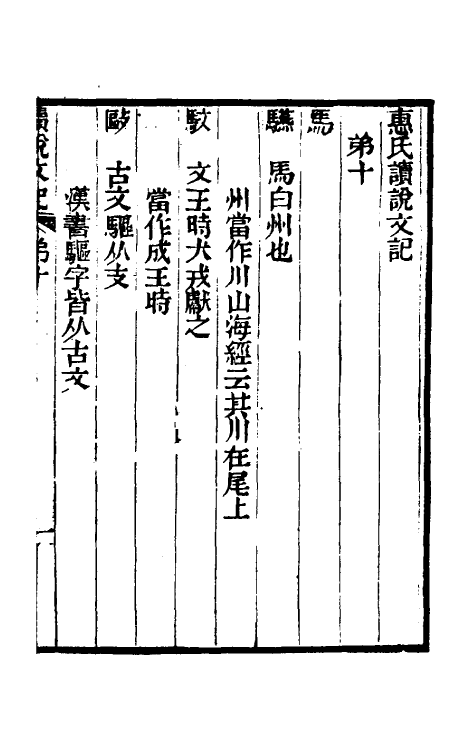 惠氏讀說文記
弟十
馬
驠 馬白州也
州當作川山海經云其川在尾上
駮 文王時犬戎獻之
當作成王時
敺 古文驅从攴
漢書驅字皆从古文
讀說文記 弟十